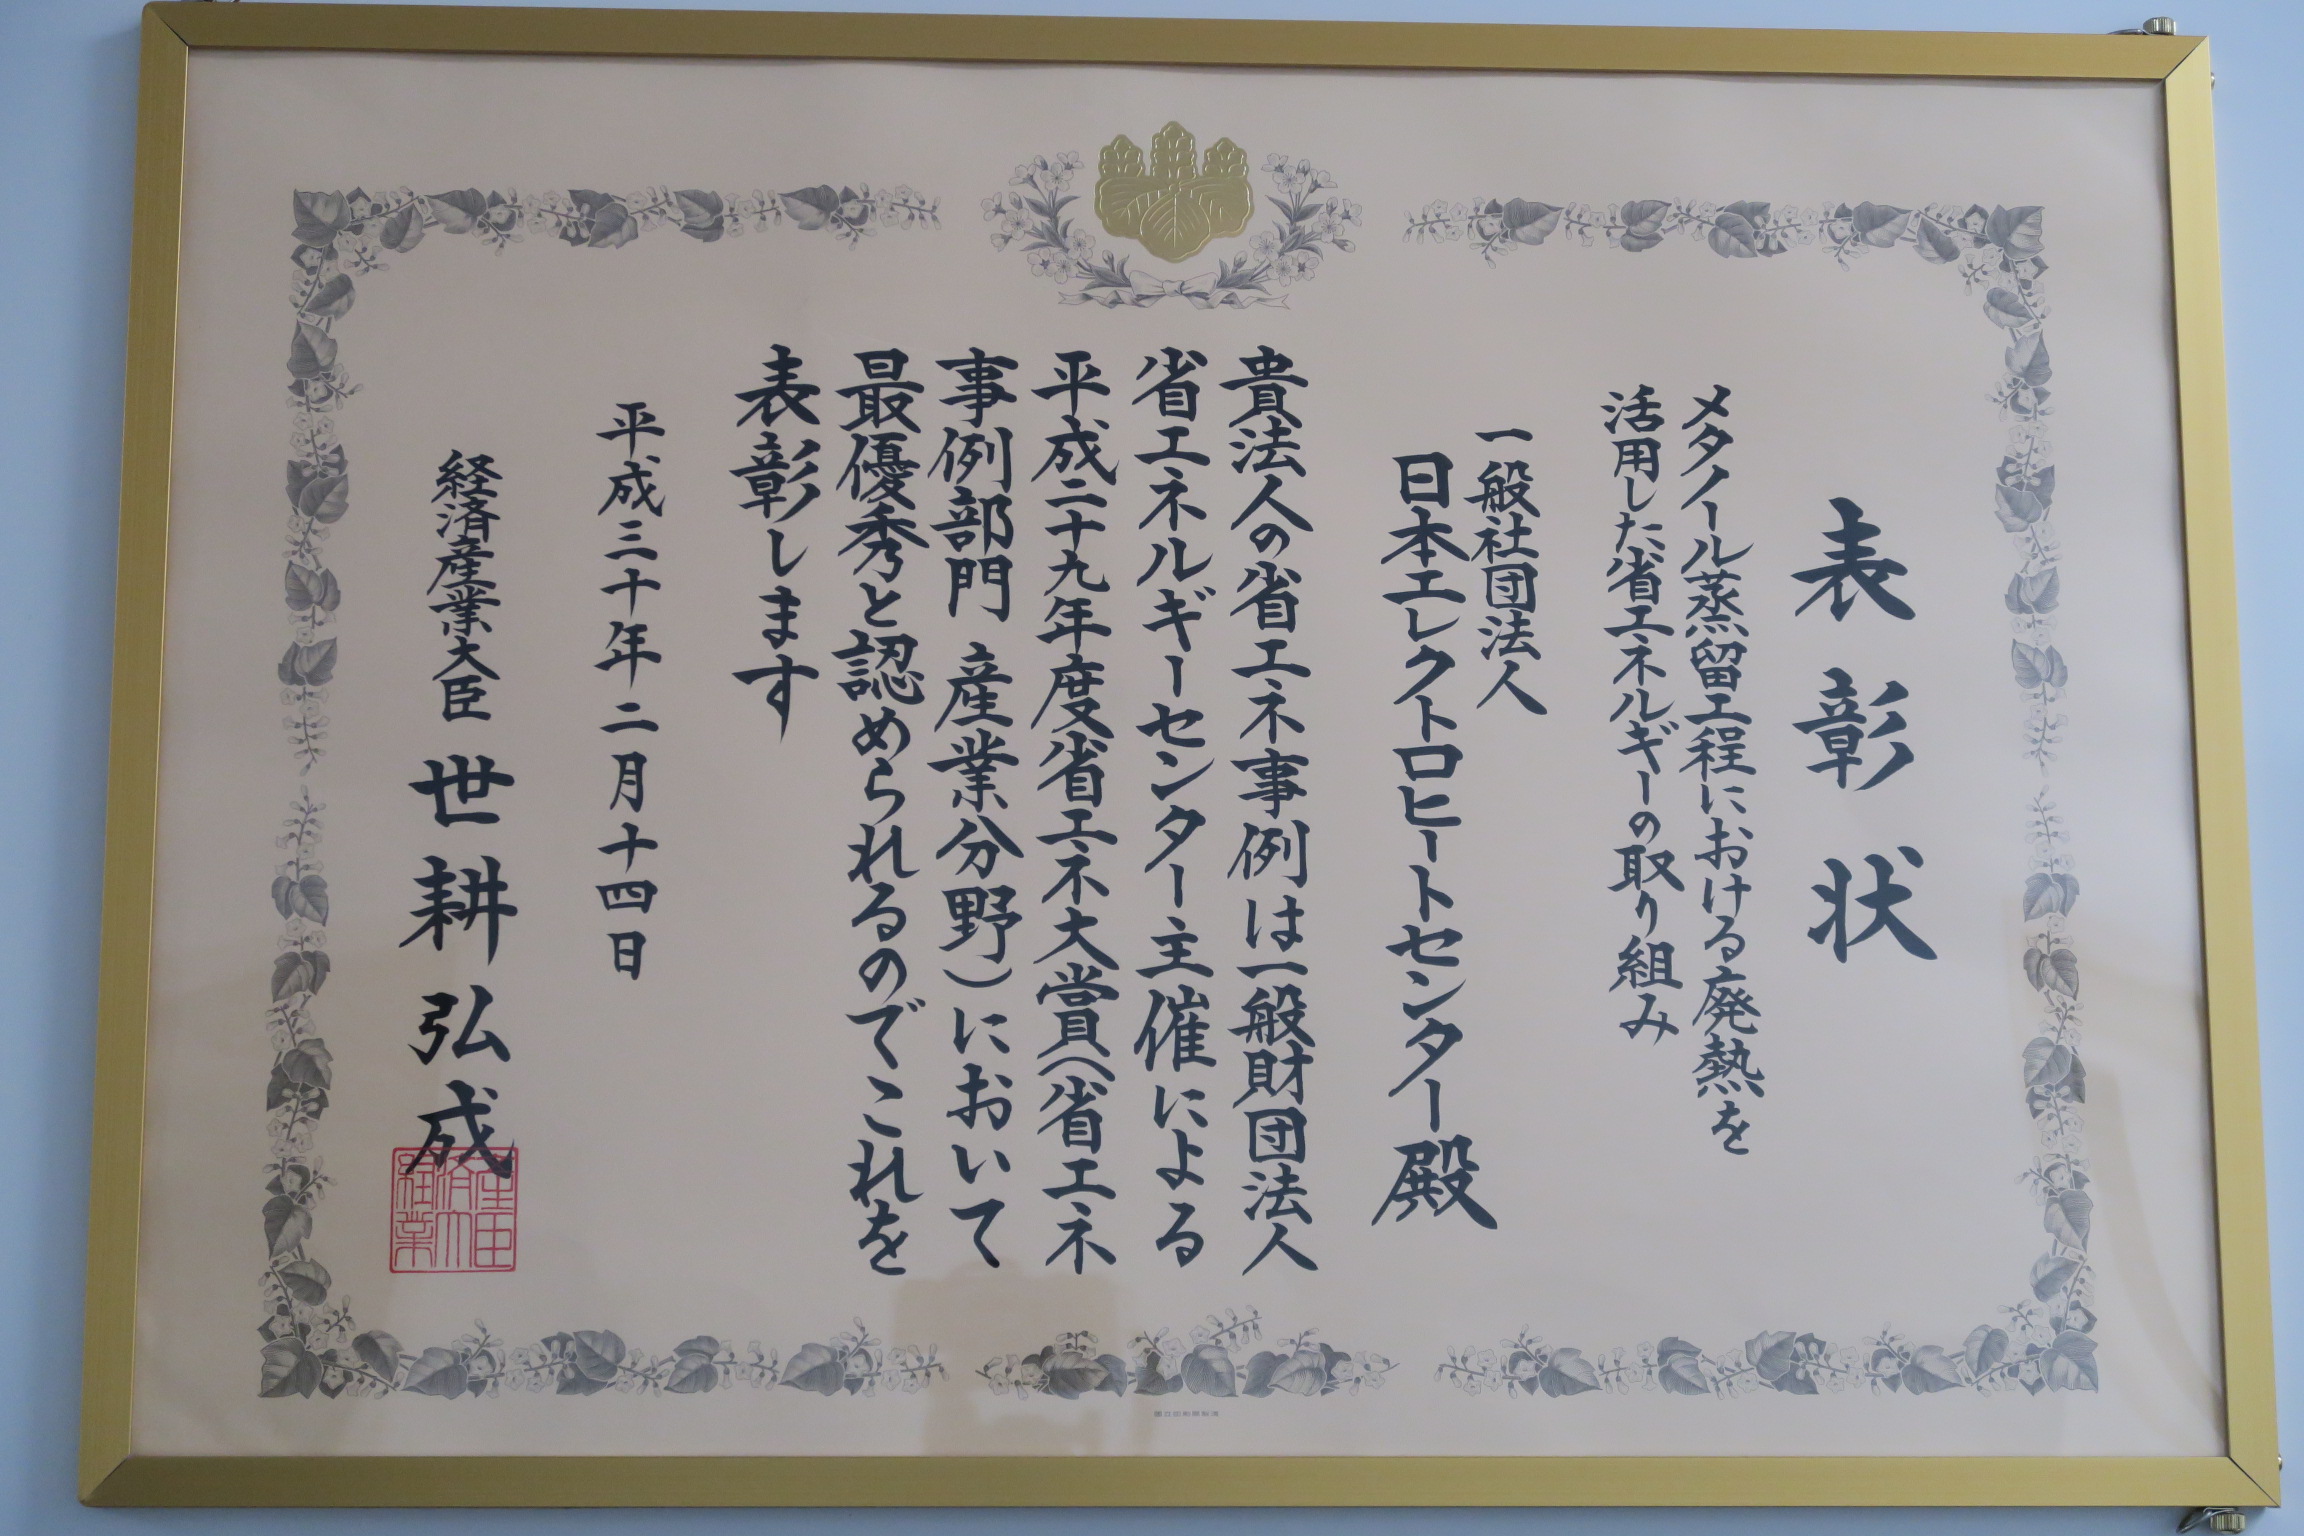 表彰状
メタノール蒸留工程における廃熱を
活用した省エネルギーの取り組み
一般社団法人
日本エレクトロヒートセンター殿
貴法人の省エネ事例は一般財団法人
省エネルギーセンター主催による
平成二十九年度省エネ大賞（省エネ
事例部門 産業分野）において
最優秀と認められるのでこれを
表彰します
平成三十年二月十四日
経済産業大臣 世耕弘成